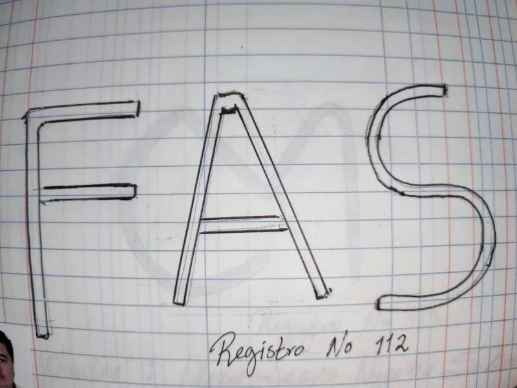 FAS
Registro No 112